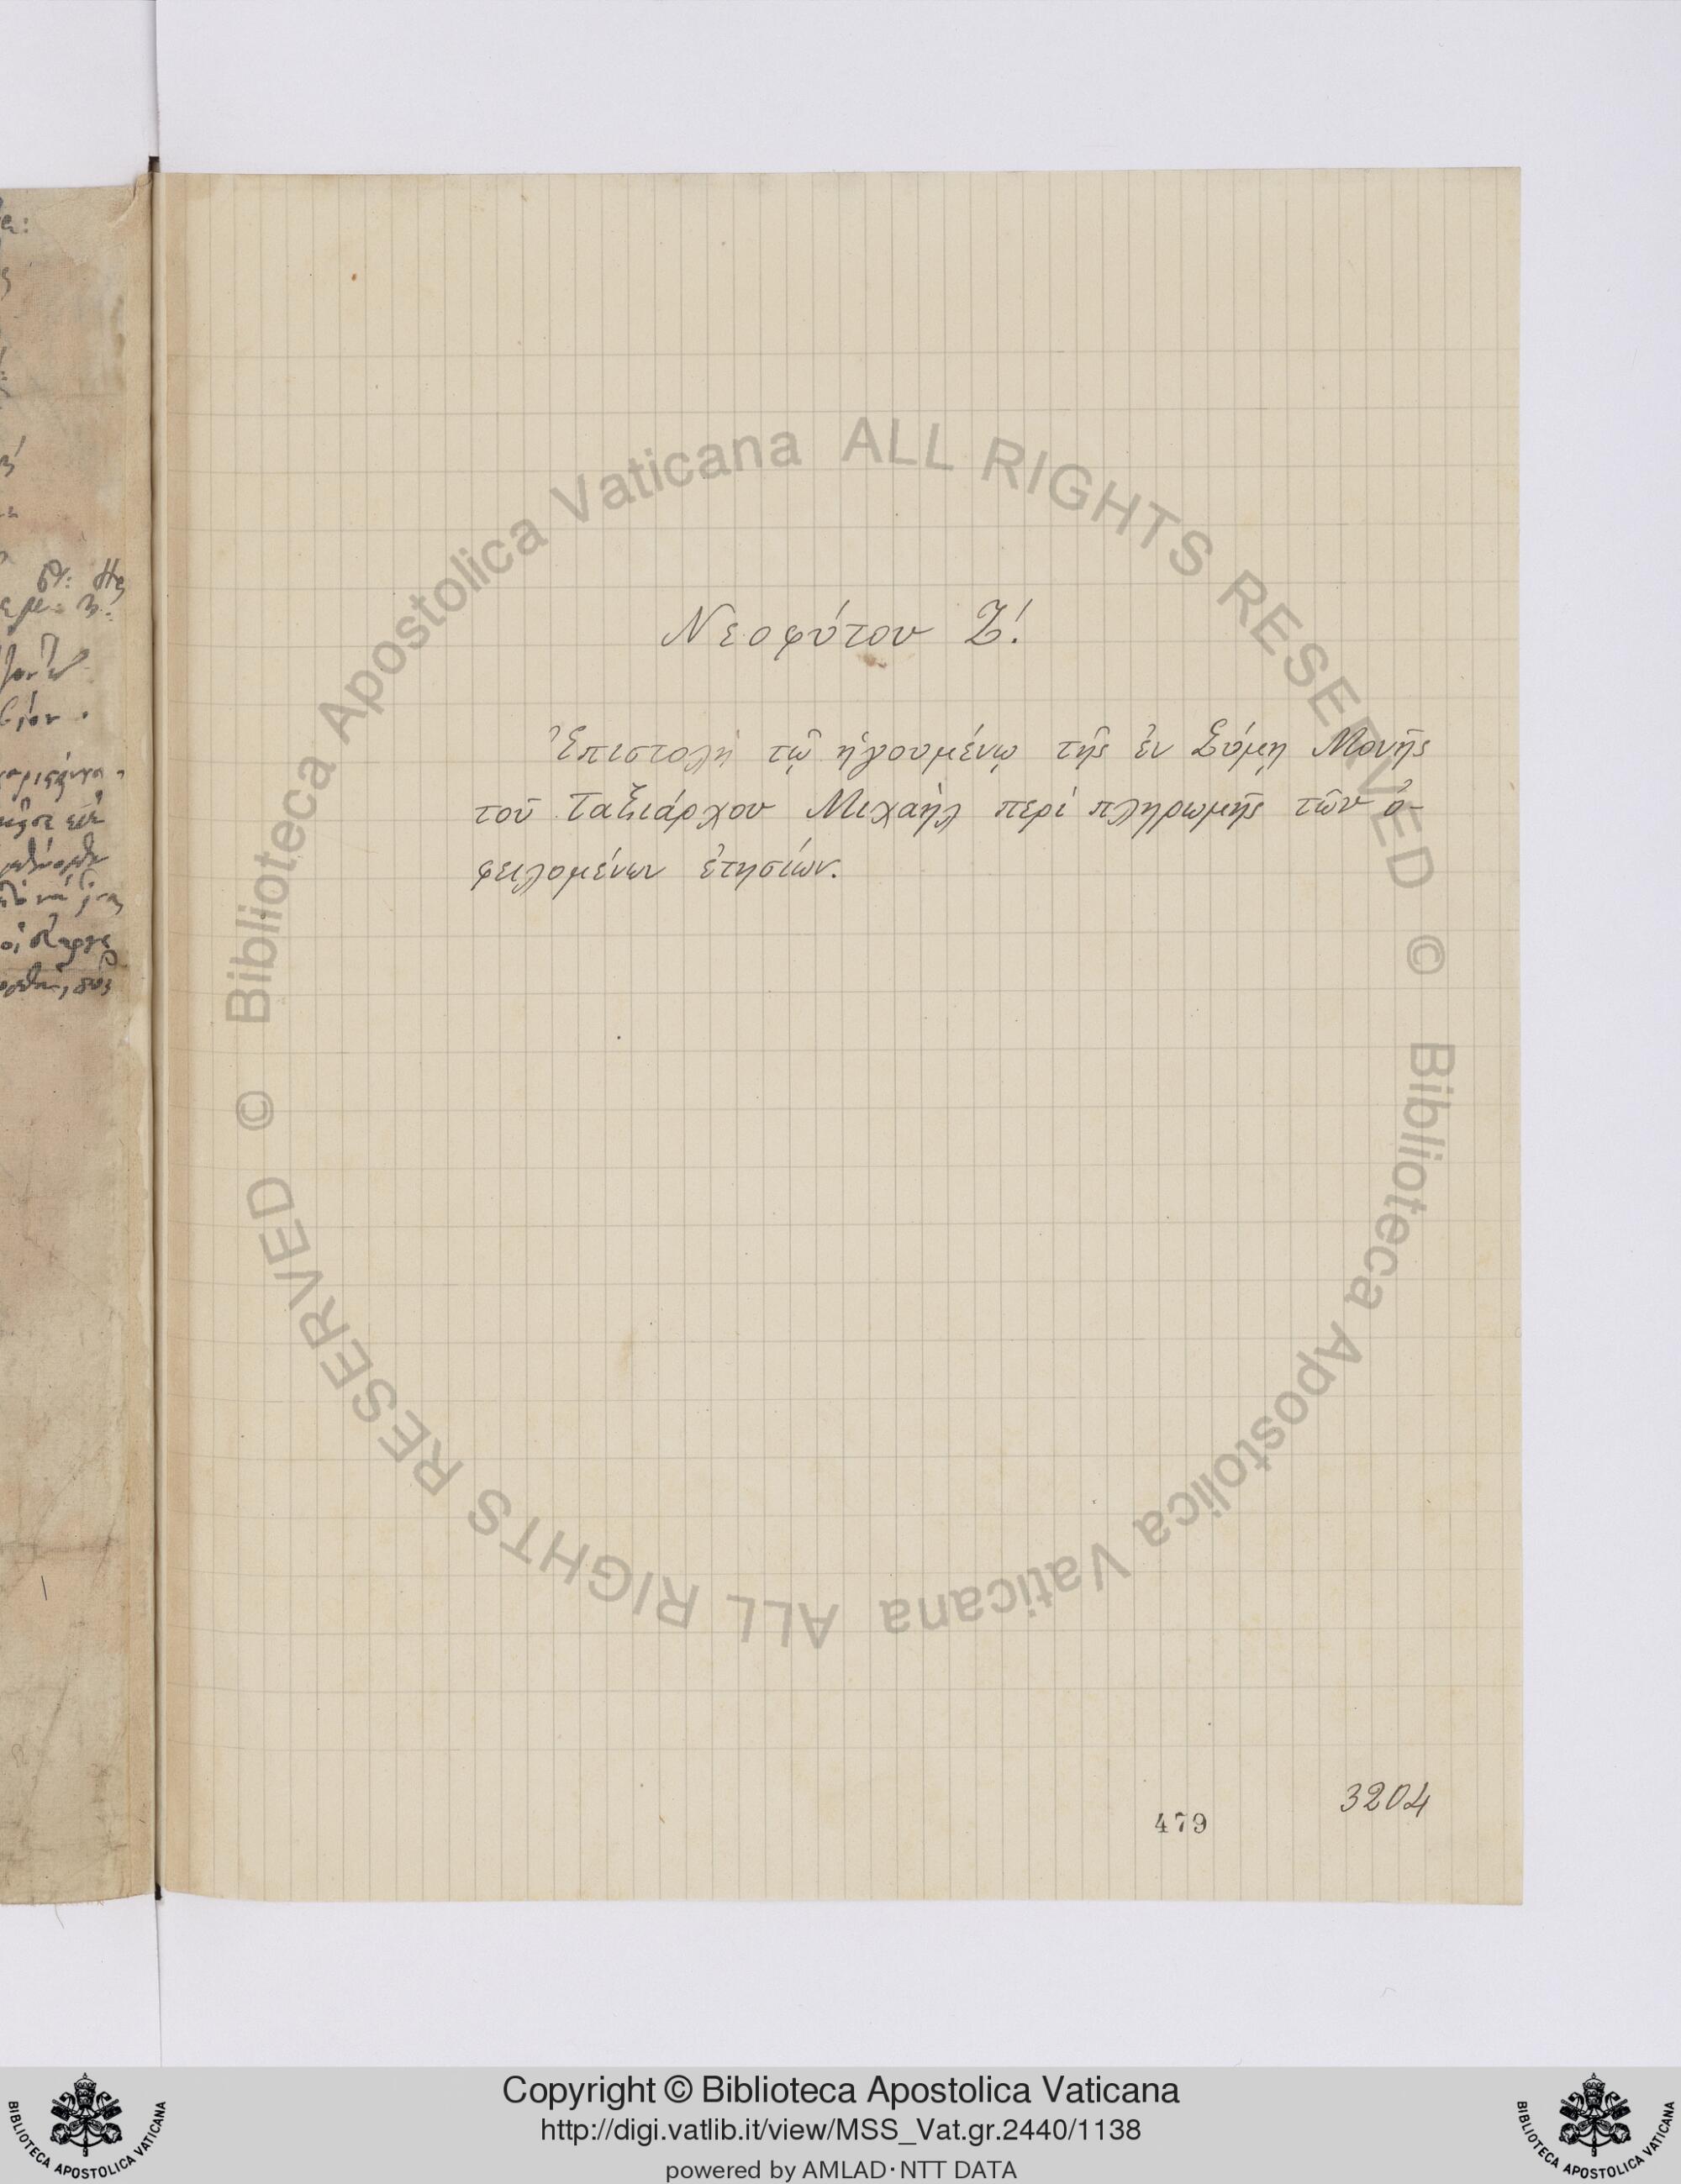 Νεοφύτου Ζ!
Ἐπιστολὴ τῷ ἡγουμένῳ τῆς ἐν Σύμῃ Μονῆς
τοῦ Ταξιάρχου Μιχαὴλ περὶ πληρωμῆς τῶν ὀ-
φειλομένων ἐτησίων.
3204
479
© Biblioteca Apostolica Vaticana ALL RIGHTS RESERVED
© Biblioteca Apostolica Vaticana ALL RIGHTS RESERVED
Copyright © Biblioteca Apostolica Vaticana
http://digi.vatlib.it/view/MSS_Vat.gr.2440/1138
powered by AMLAD·NTT DATA
BIBLIOTECA APOSTOLICA VATICANA
BIBLIOTECA APOSTOLICA VATICANA